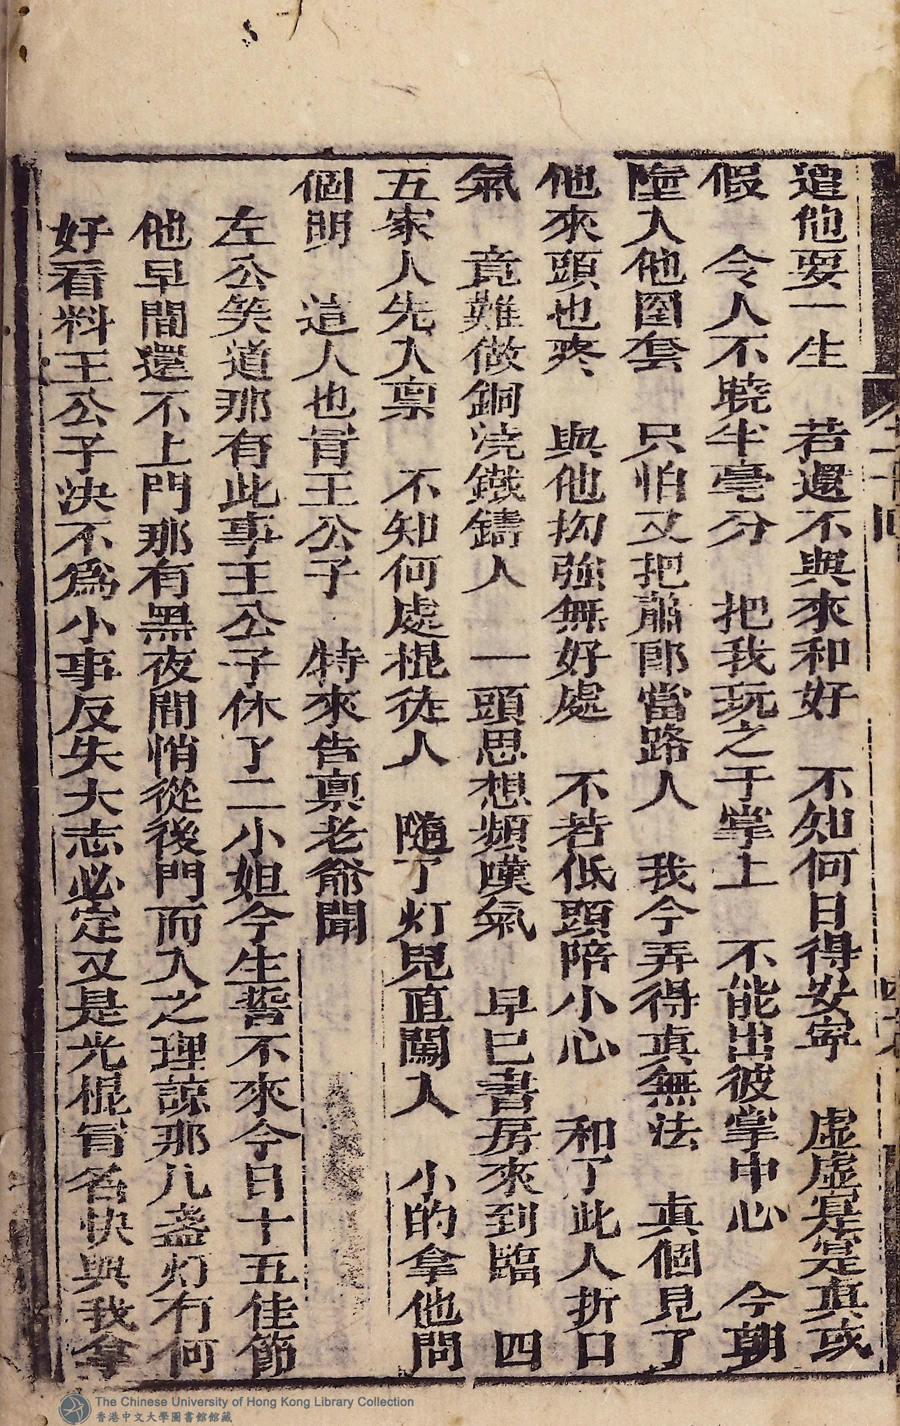 遭他耍一生　若還不與來和好　不知何日得安寧　虛虛寔寔真或
假　令人不曉半毫分　把我玩之于掌上　不能出彼掌中心　今朝
墮入他圈套　只怕又把蕭郎當路人　我今弄得真無法　真個見了
他來頭也疼　與他拗強無好處　不若低頭陪小心　和了此人折口
氣　竟難做銅澆鐵鑄人　一頭思想頻嘆氣　早已書房來到臨　四
五家人先入稟　不知何處棍徒人　隨了灯兒直闖入　小的拿他問
個明　這人也冒王公子　特來告稟老爺聞
左公笑道那有此事王公子休了二小姐今生誓不來今日十五佳節
他早間還不上門那有黑夜間悄從後門而入之理諒那几盞灯有何
好看料王公子決不為小事反失大志必定又是光棍冒名快與我拿
The Chinese University of Hong Kong Library Collection
香港中文大學圖書館館藏